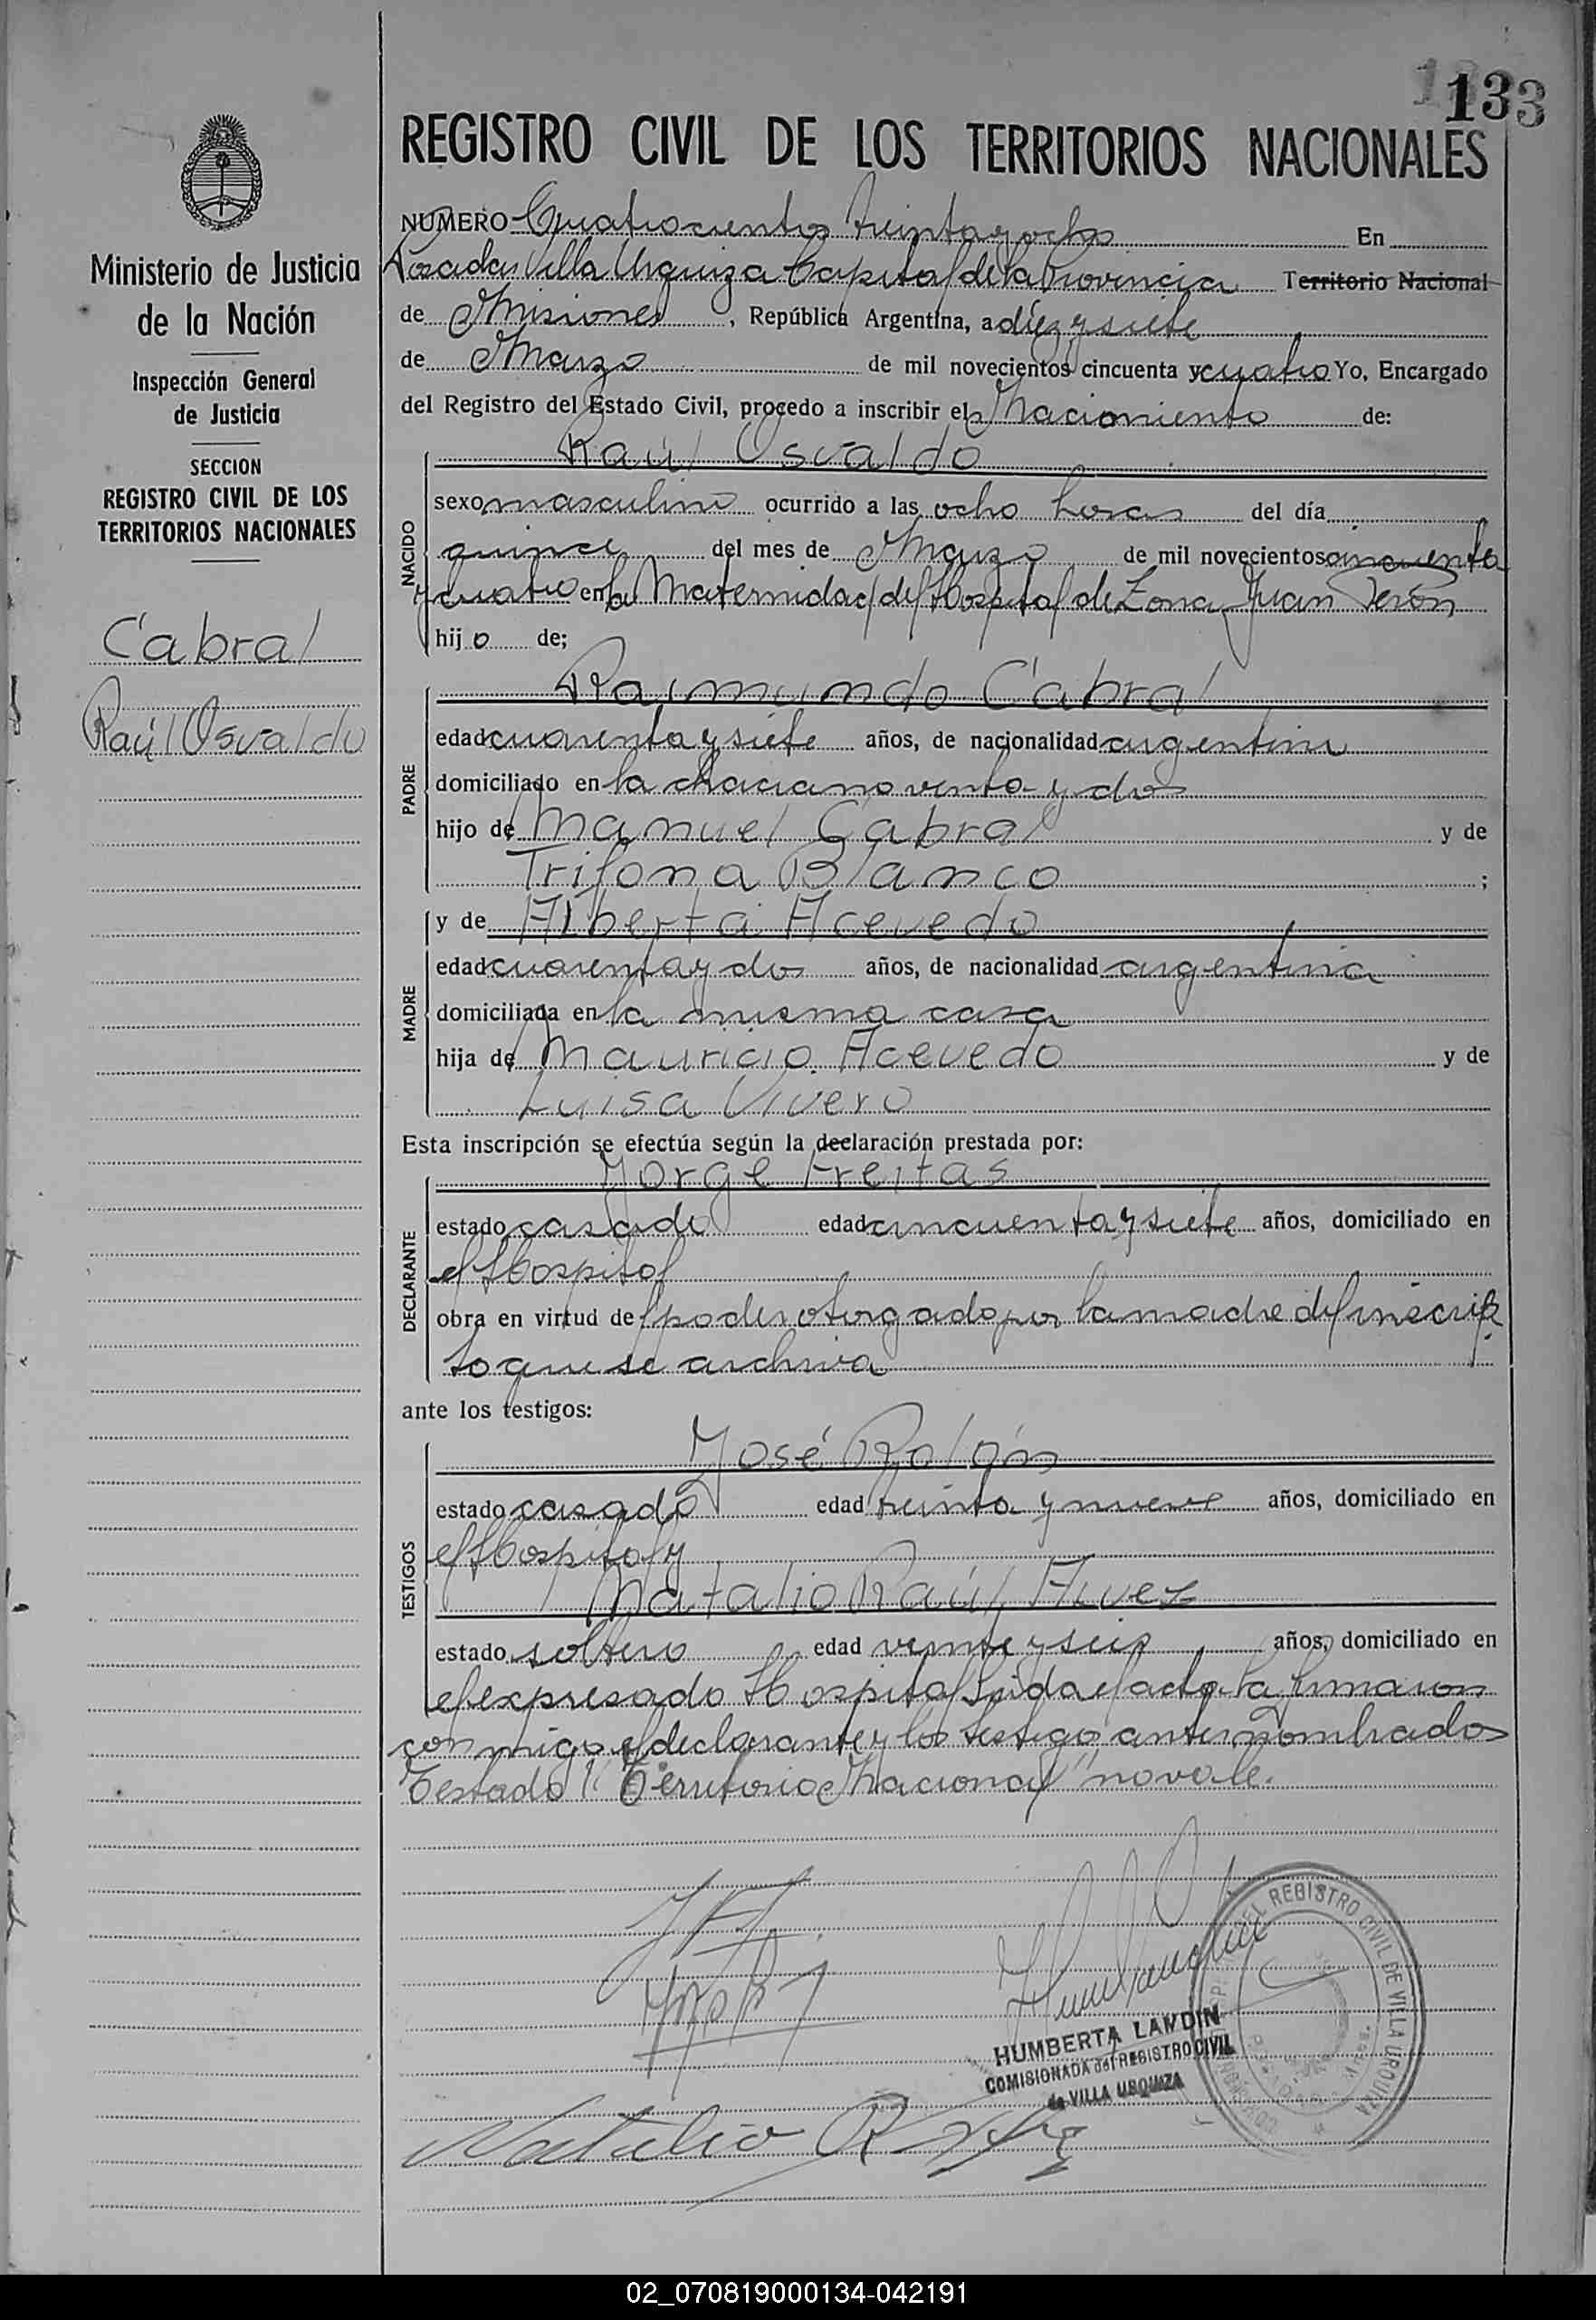 133
REGISTRO CIVIL DE LOS TERRITORIOS NACIONALES
Ministerio de Justicia
de la Nación
Inspección General
de Justicia
SECCION
REGISTRO CIVIL DE LOS
TERRITORIOS NACIONALES
Cabral
Raúl Osvaldo
NUMERO Cuatrocientos treinta y ocho En
Posadas Villa Urquiza Capital de la Provincia Territorio Nacional
de Misiones, República Argentina, a diez y siete
de Marzo de mil novecientos cincuenta y cuatro Yo, Encargado
del Registro del Estado Civil, procedo a inscribir el Nacimiento de:
NACIDO
Raúl Osvaldo
sexo masculino ocurrido a las ocho horas del día
quince del mes de Marzo de mil novecientos cincuenta
y cuatro en la Maternidad del Hospital de Zona Juan Perón
hijo de;
PADRE
Raimundo Cabral
edad cuarenta y siete años, de nacionalidad argentina
domiciliado en la chacra noventa y dos
hijo de Manuel Cabral y de
Trifona Blanco ;
MADRE
y de Alberta Acevedo
edad cuarenta y dos años, de nacionalidad argentina
domiciliada en la misma casa
hija de Mauricio Acevedo y de
Luisa Vivero
Esta inscripción se efectúa según la declaración prestada por:
DECLARANTE
Jorge Freitas
estado casado edad cincuenta y siete años, domiciliado en
el Hospital
obra en virtud del poder otorgado por la madre del inscrip
to que se archiva
ante los testigos:
TESTIGOS
José Rolón
estado casado edad treinta y nueve años, domiciliado en
el Hospital y
Natalio Raúl Alvez
estado soltero edad veinte y seis años, domiciliado en
el expresado Hospital Leida el acta la firmaron
conmigo el declarante y los testigo antes nombrados
Testado "Territorio Nacional" no vale.
HUMBERTA LANDIN
COMISIONADA del REGISTRO CIVIL
de VILLA URQUIZA
DEL REGISTRO CIVIL DE VILLA URQUIZA
Natalio R
02_070819000134-042191